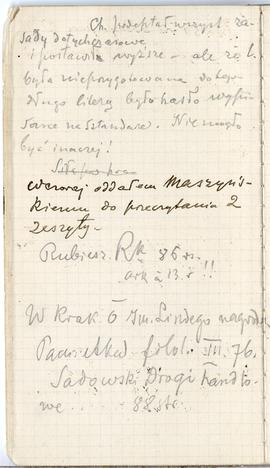 Ch. podeptał wszyst. za-
sady dotychczasowe
i postawił wyższe – ale że l.
była nieprzygotowana do tego
długo literą było hasło wypi-
sane na sztandarze. Nie mogło
być inaczej!
wczoraj oddałem Maszyńs-
kiemu do przeczytania 2
zeszyty.
Rubież. Rk 86 rs.
ark à 13 r !!
W Krak. ō Im. Lindego nagroda
Pamiętku filol. III. 76.
Sadowski Drogi handlo-
we... 88 str.